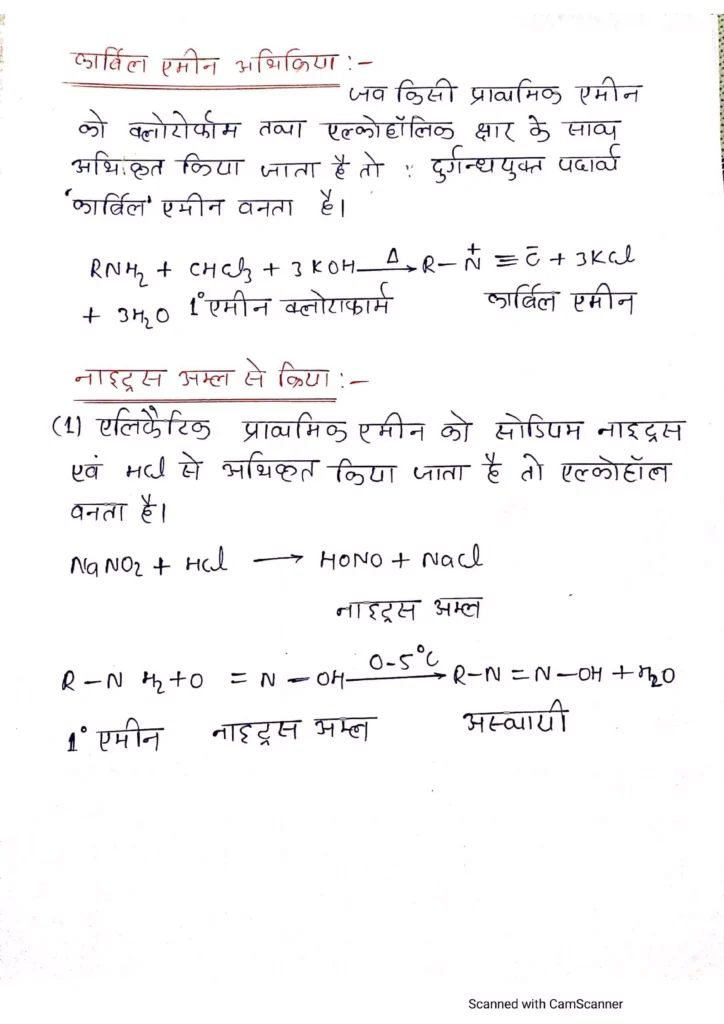 कार्बिल एमीन अभिक्रिया :-
जब किसी प्राथमिक एमीन
को क्लोरोफॉम तथा एल्कोहॉलिक क्षार के साथ
अभिःकृत किया जाता है तो : दुर्गन्धयुक्त पदार्थ
'कार्बिल' एमीन बनता है।
RNH₂ + CHCl₃ + 3 KOH —Δ→ R – N⁺ ≡ C̄ + 3KCl
+ 3H₂O 1° एमीन क्लोराफार्म कार्बिल एमीन
नाइट्रस अम्ल से क्रिया :-
(1) एलिफैटिक प्राथमिक एमीन को सोडियम नाइट्रस
एवं HCl से अभिकृत किया जाता है तो एल्कोहॉल
बनता है।
NaNO₂ + HCl → HONO + NaCl
नाइट्रस अम्ल
R – N H₂ + O = N – OH —0-5°C→ R–N = N–OH + H₂O
1° एमीन नाइट्रस अम्ल अस्थायी
Scanned with CamScanner